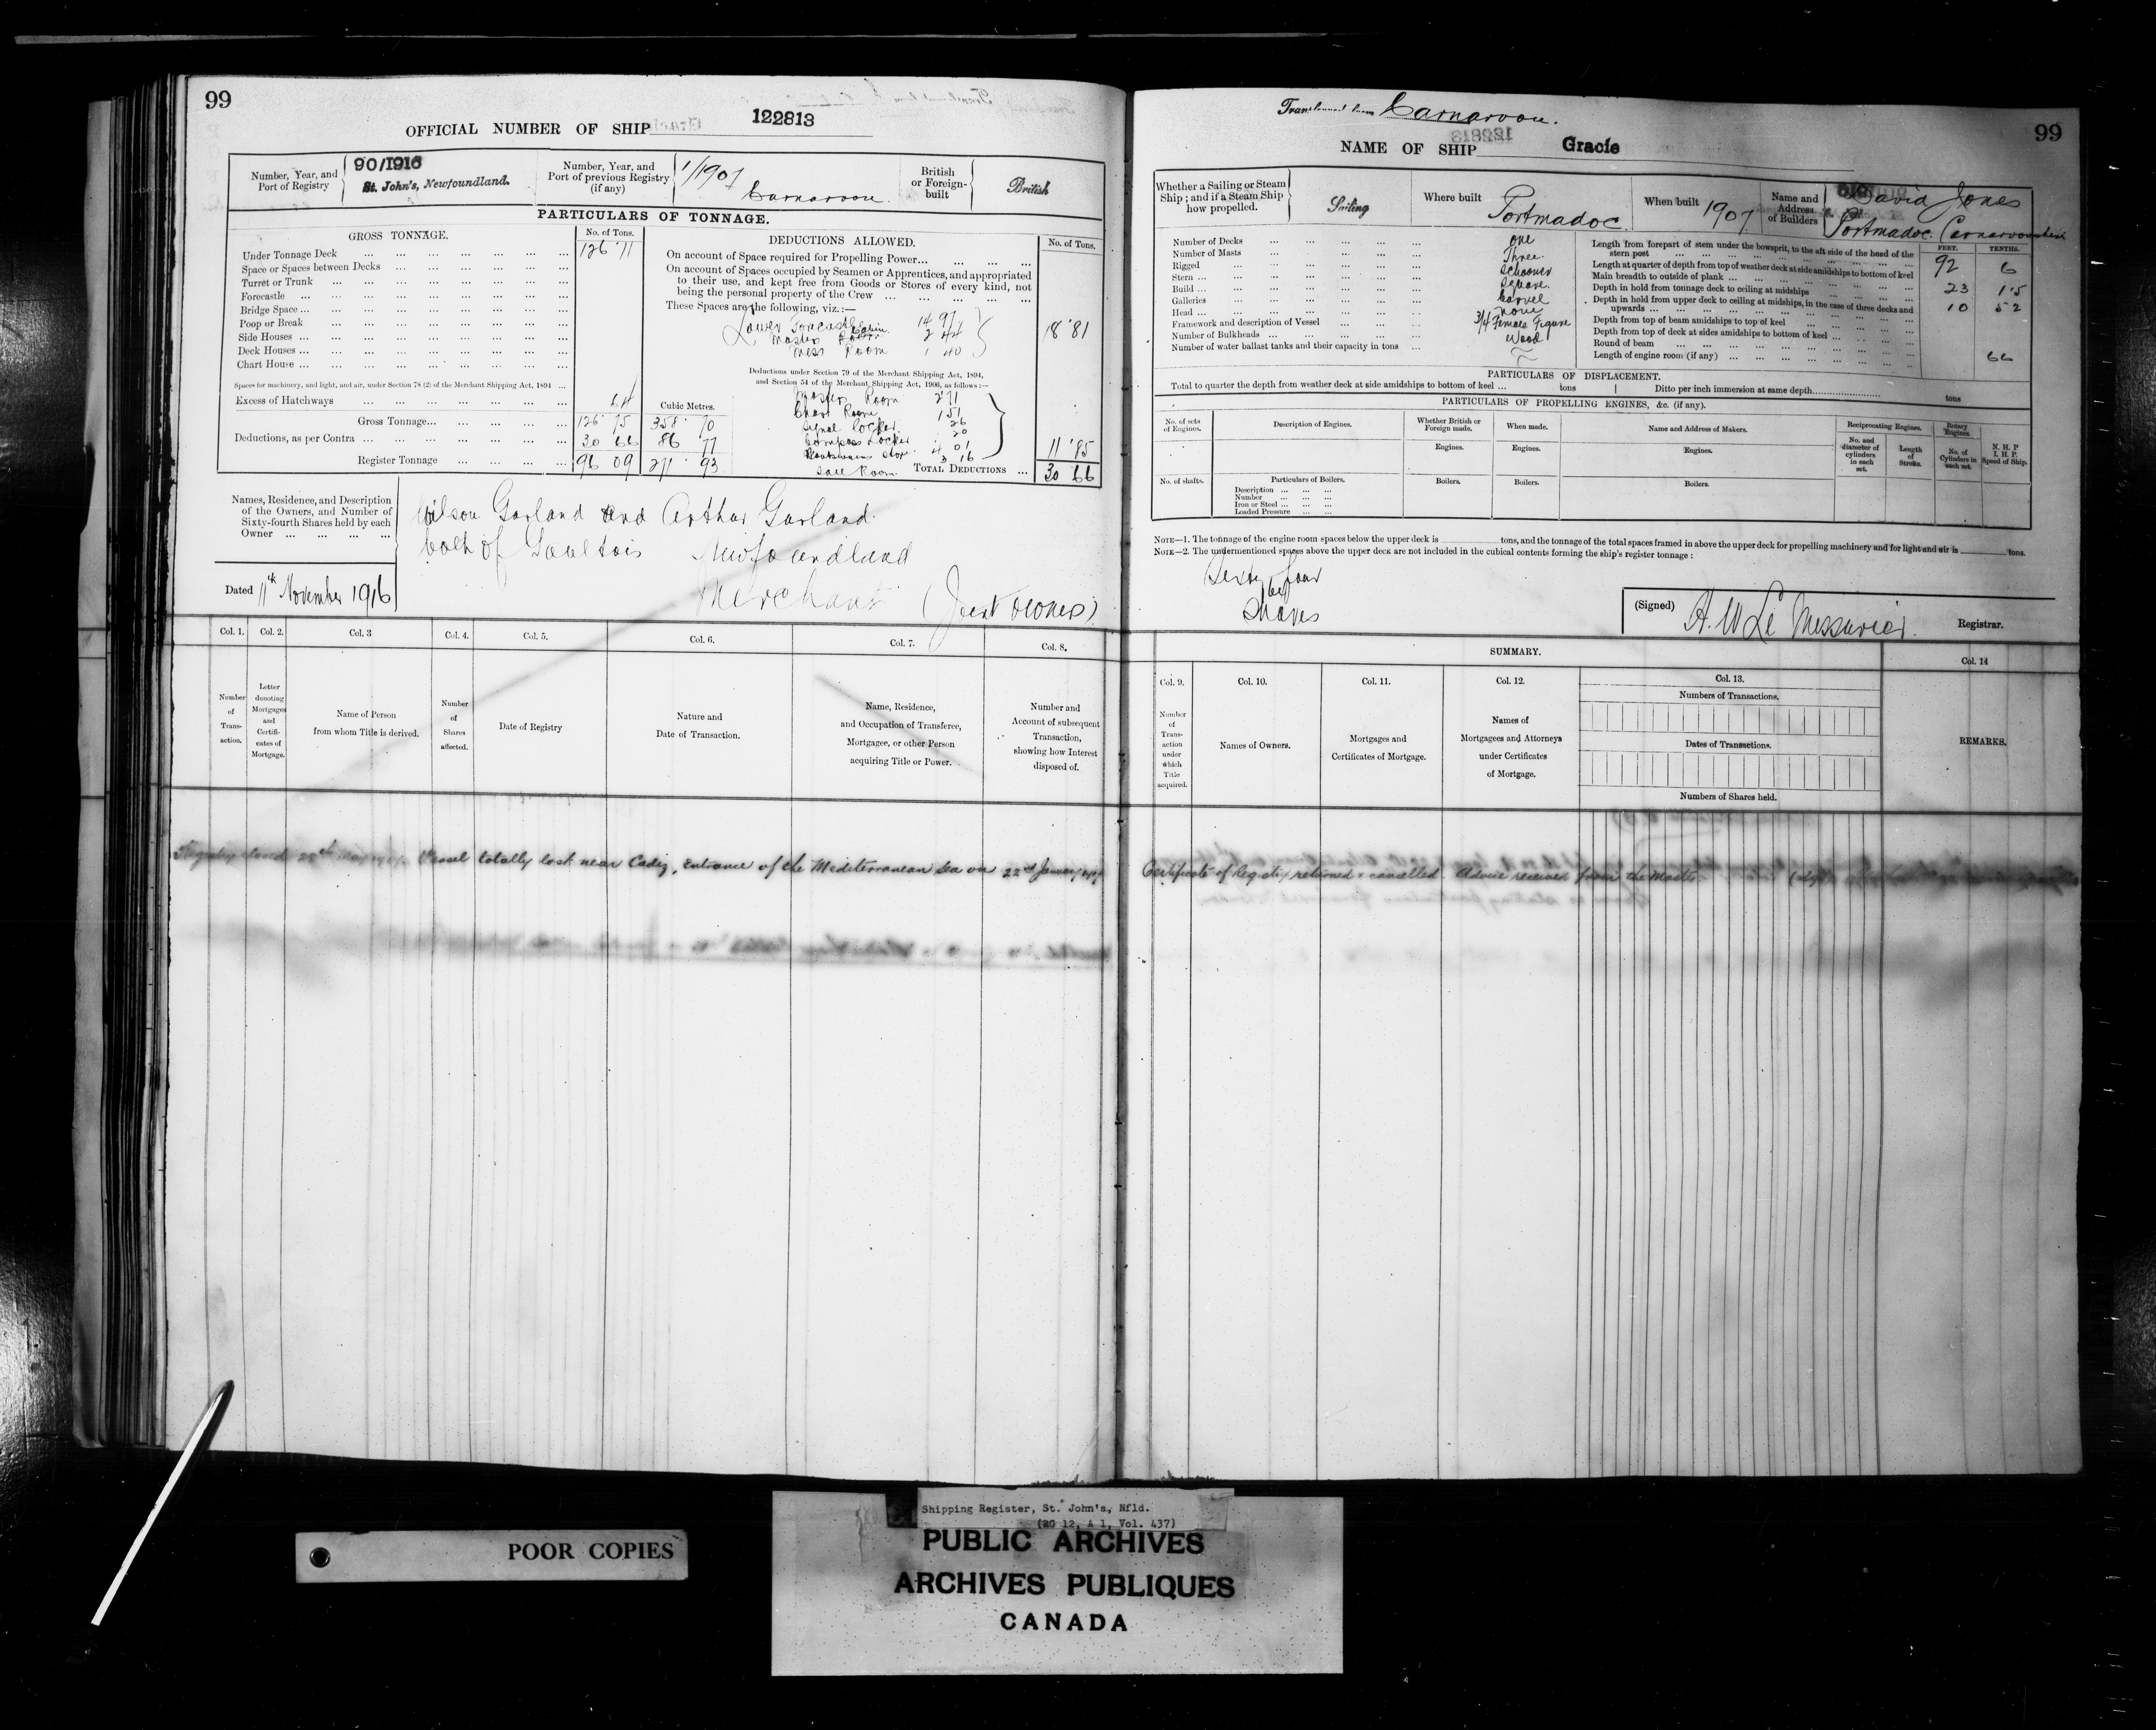 99
OFFICIAL NUMBER OF SHIP 122813
Number, Year, and Port of Registry
90/1916
St. John's, Newfoundland.
Number, Year, and Port of previous Registry (if any)
1/1907
Carnarvon.
British or Foreign-built
British
PARTICULARS OF TONNAGE.
GROSS TONNAGE.
No. of Tons.
Under Tonnage Deck ... 126 11
Space or Spaces between Decks
Turret or Trunk
Forecastle
Bridge Space
Poop or Break
Side Houses
Deck Houses
Chart House
Spaces for machinery, and light, and air, under Section 78 (2) of the Merchant Shipping Act, 1894
Excess of Hatchways
Cubic Metres.
Gross Tonnage... 126 75 358 70
Deductions, as per Contra ... 30 66 86 77
Register Tonnage ... 96 09 271 93
DEDUCTIONS ALLOWED.
No. of Tons.
On account of Space required for Propelling Power...
On account of Spaces occupied by Seamen or Apprentices, and appropriated to their use, and kept free from Goods or Stores of every kind, not being the personal property of the Crew ...
These Spaces are the following, viz.:—
Lower Forecastle 14 97
Cabin 2 44
Mess Room 1 40
18 81
Deductions under Section 79 of the Merchant Shipping Act, 1894,
and Section 54 of the Merchant Shipping Act, 1906, as follows:—
Masters Room 2 71
Chart Room 1 51
Signal Locker 26
Compass Locker 20
Boatswains Store 4 01
Sail Room 3 16
11 85
TOTAL DEDUCTIONS ... 30 66
Names, Residence, and Description of the Owners, and Number of Sixty-fourth Shares held by each Owner
Wilson Garland and Arthur Garland
both of Gaultois Newfoundland
Merchant (Joint Owners)
Dated 11th November 1916
Col. 1.
Number of Transaction.
Col. 2.
Letter denoting Mortgages and Certificates of Mortgage.
Col. 3
Name of Person from whom Title is derived.
Col. 4.
Number of Shares affected.
Col. 5.
Date of Registry
Col. 6.
Nature and Date of Transaction.
Col. 7.
Name, Residence, and Occupation of Transferee, Mortgagee, or other Person acquiring Title or Power.
Col. 8.
Number and Account of subsequent Transaction, showing how Interest disposed of.
Registry closed Vessel totally lost near Cadiz, Entrance of the Mediterranean Sea on 22nd January
Transferred from Carnarvon.
99
NAME OF SHIP Gracie
Whether a Sailing or Steam Ship; and if a Steam Ship how propelled.
Sailing
Where built
Portmadoc
When built
1907
Name and Address of Builders
David Jones
Portmadoc Carnarvonshire
Number of Decks ... one
Number of Masts ... Three
Rigged ... Schooner
Stern ... Square
Build ... Carvel
Galleries ... none
Head ... 3/4 Female Figure
Framework and description of Vessel ... Wood
Number of Bulkheads
Number of water ballast tanks and their capacity in tons
FEET. TENTHS.
Length from forepart of stem under the bowsprit, to the aft side of the head of the stern post ... 92 6
Length at quarter of depth from top of weather deck at side amidships to bottom of keel
Main breadth to outside of plank ... 23 15
Depth in hold from tonnage deck to ceiling at midships ... 10 52
Depth in hold from upper deck to ceiling at midships, in the case of three decks and upwards
Depth from top of beam amidships to top of keel
Depth from top of deck at sides amidships to bottom of keel
Round of beam
Length of engine room (if any) ... 66
PARTICULARS OF DISPLACEMENT.
Total to quarter the depth from weather deck at side amidships to bottom of keel ... tons
Ditto per inch immersion at same depth ... tons
PARTICULARS OF PROPELLING ENGINES, &c. (if any).
No. of sets of Engines.
Description of Engines.
Whether British or Foreign made.
When made.
Name and Address of Makers.
Reciprocating Engines.
No. and diameter of cylinders in each set.
Length of Stroke.
Rotary Engines
No. of Cylinders in each set.
N. H. P
I. H. P.
Speed of Ship.
Engines. Engines. Engines.
No. of shafts.
Particulars of Boilers.
Description
Number
Iron or Steel
Loaded Pressure
Boilers. Boilers. Boilers.
NOTE—1. The tonnage of the engine room spaces below the upper deck is ... tons, and the tonnage of the total spaces framed in above the upper deck for propelling machinery and for light and air is ... tons.
NOTE—2. The undermentioned spaces above the upper deck are not included in the cubical contents forming the ship's register tonnage:
Sixty four
64
Shares
(Signed) H. W Le Messurier. Registrar.
SUMMARY.
Col. 9.
Number of Transaction under which Title acquired.
Col. 10.
Names of Owners.
Col. 11.
Mortgages and Certificates of Mortgage.
Col. 12.
Names of Mortgagees and Attorneys under Certificates of Mortgage.
Col. 13.
Numbers of Transactions.
Dates of Transactions.
Numbers of Shares held.
Col. 14
REMARKS.
Certificate of Registry returned & cancelled. Advice received from the Master
POOR COPIES
Shipping Register, St. John's, Nfld.
(RG 12, A 1, Vol. 437)
PUBLIC ARCHIVES
ARCHIVES PUBLIQUES
CANADA